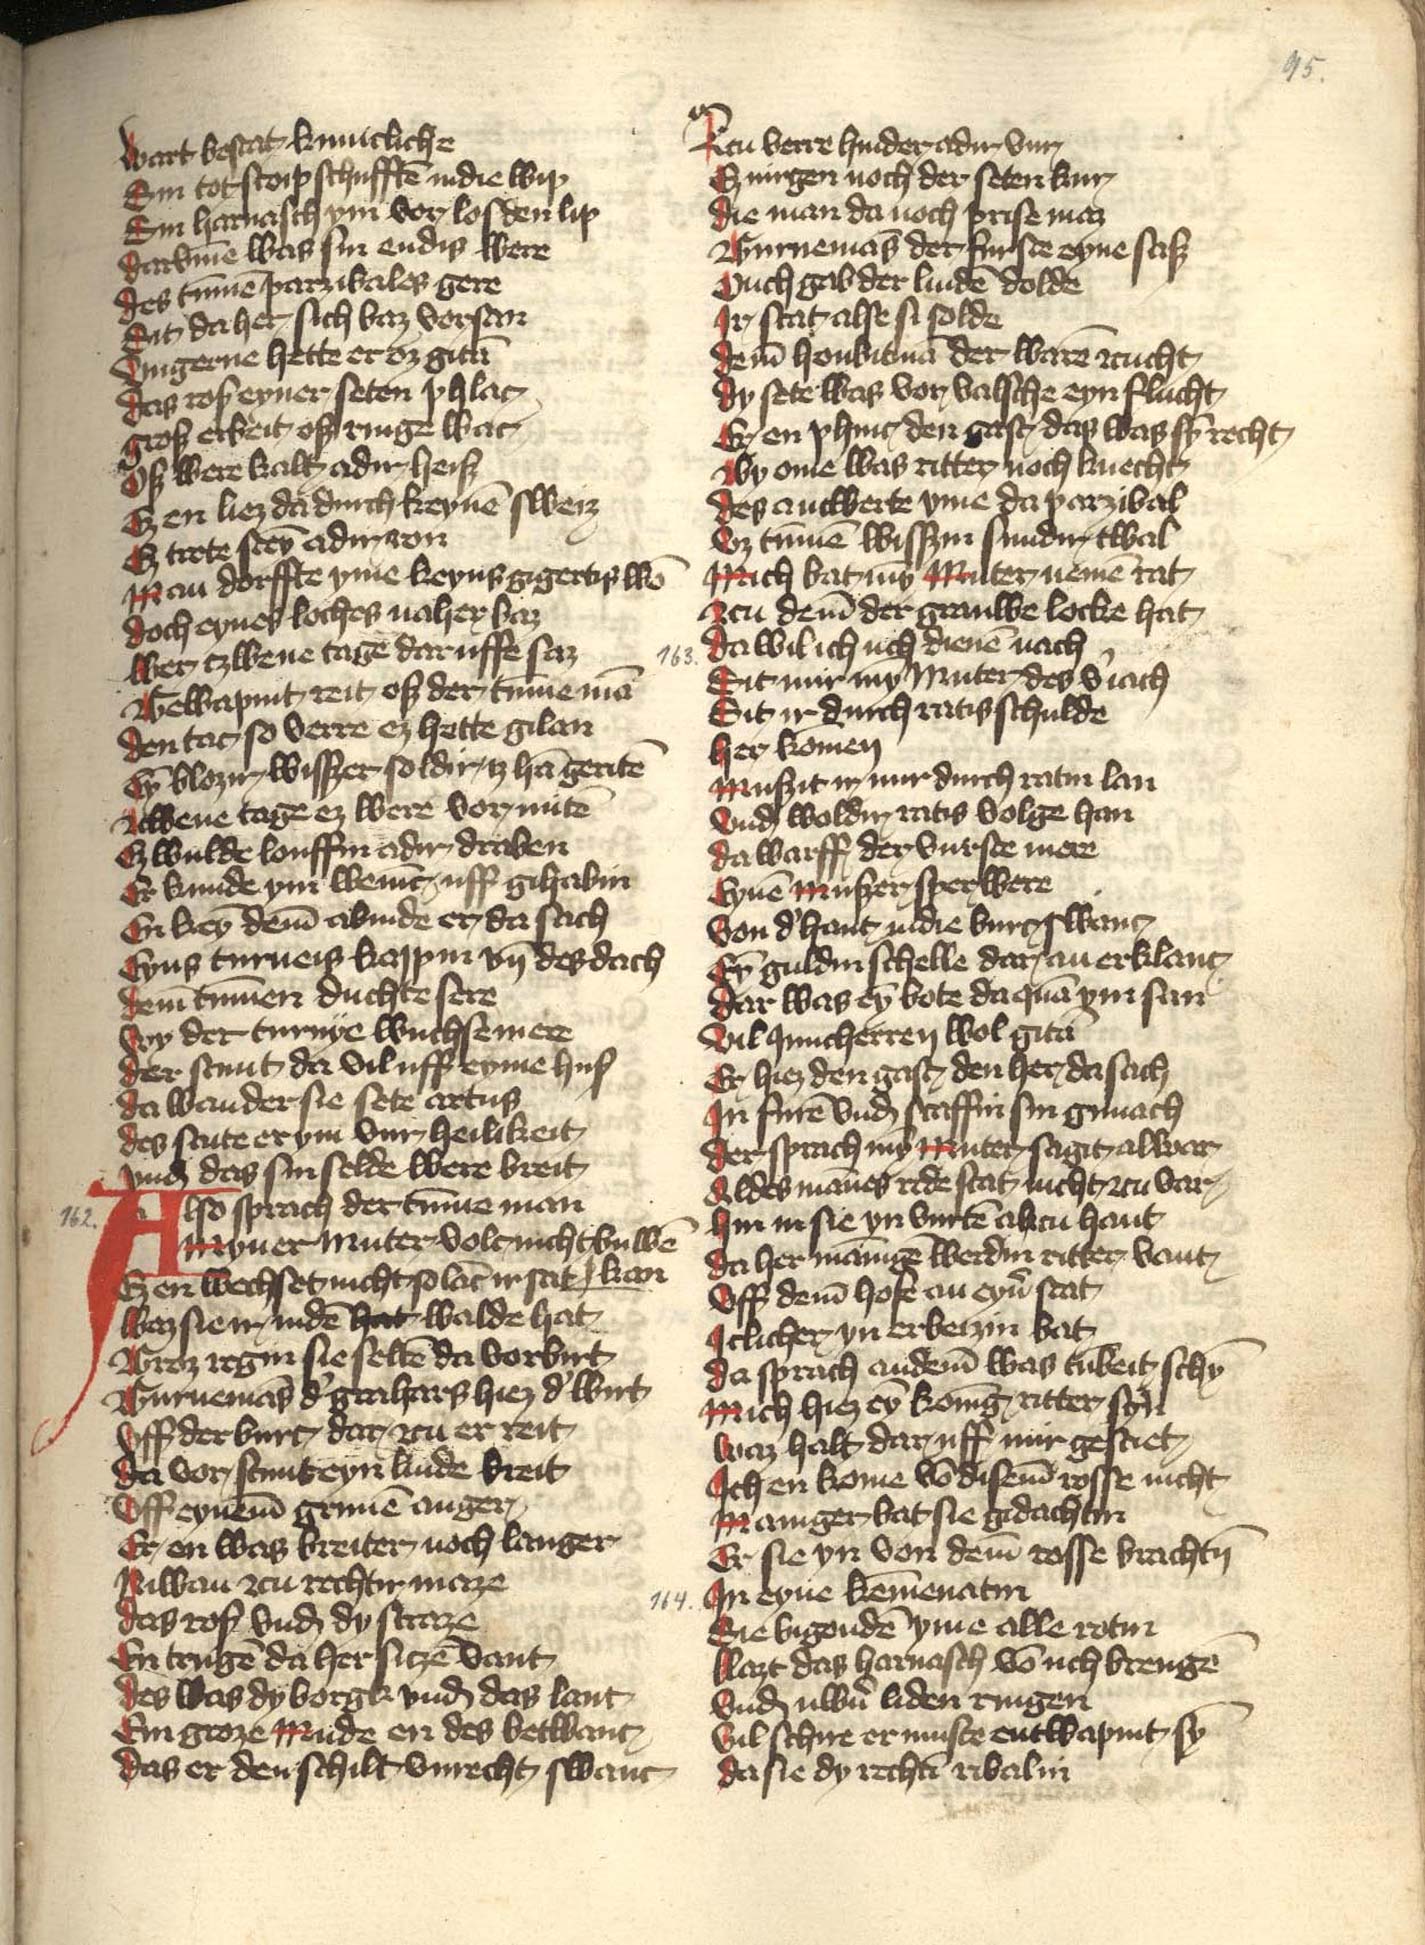 95.
Wart bestat kuniclich͛e
Sin tot stoip schufftē in die wip
Sin harnasch ym vor los den lip
dar vm̄e was sin endis were
des tūmē parzibales gere
Sit da her sich baz vorsan
Vngerne hette er ez gitā
das ros eyner seten phlac
gros erbeit oß ringe wac
Oß were kalt adir heiß
Ez en liez da durch keynē sweiz
Ez trete stey̅ adir ron
Man dorffte yme keyns gigertis wō
doch eynes loches naher baz
wer tzwene tage dar uffe saz
Gewapint reit oß der tūme mā
den tac so verre ez hette gilan
Ey̅ blozir wisszer soldir tz hā geritē
Zcwene tage ez were vormitē
Ez wulde louffin adir draben
Er kunde ym wenic uff gihabin
En key̅ dem̄ abinde er da sach
Eyns turneis kappin vn̄ des dach
dem̄ tūmen duchte sere
Wy der turnye wuchse mere
der stunt da vil uff eyme hus
da wander sie sete artus
des state er ym vur heilikeit
vnd das sin selde were breit
162.
Also sprach der tūme man
Myner muter volc nicht buwē
Ez en wechset nicht so lāc ir sat / kan
waz sie ir in dē hat walde hat
Groz regin sie seltē da vorbirt
Gurnemās d' grahars hiez d' wirt
Vff der burc dar zcu er reit
da vor stunt eyn linde breit
Vff eynem̄ grunē anger
Er en was breiter noch langer
Niwan zcu rechtir maze
das ros vnd dy straze
En trugē da her sitzē vant
des was dy borgk vnd das lant
Ein groze mude en des betwanc
das er den schilt vnrecht swanc
Zcu verre hinder adir vur
Ez nirgen noch der seten kur
die man da noch prise maz
Gurnemās der furste eyne saß
Ouch gab der lindē dolde
Ir stat alse si solde
dem̄ houbitmā der warē zcucht
dy sete was vor valsche eyn flucht
Er en phinc den gast das was sy̅ recht
By ome was ritter noch knecht
des antwerte yme da parzibal
Vz tūmē wisszin sundir twal
Mich bat my̅ muter nemē rat
Zcu dem̄ der grauwe locke hat
163.
da wil ich uch dienē nach
Sit mir my̅ muter des v'iach
Sit ir durch ratis schulde
her komen
Mußit ir mir durch ratin lan
Vnd woldir ratis volge han
da warff der vurste mere
Eynē mußer sperwere
Von d' hant in die burc swanc
Ey̅ guldin schelle dar an erklanc
dar was ey̅ bote da quā ym san
Vil Juncherren wol gitā
Er hiez den gast den her da sach
In furē vnd staffin sin gimach
der sprach my̅ muter sagit al war
Aldes mānes rede stat nicht zcu var
hin in sie yn vurtē alzcu hant
da her mānigē werdin ritter vant
Vff dem̄ hofe an eyn' stat
Iclicher yn erbeizin bat
da sprach an dem̄ was tūbeit schy̅
Mich hiez ey̅ konig ritter syn
waz halt dar uff mir gesciet
Ich en kome vō disem̄ rosse nicht
Maniger bat sie gidachtin
Er sie yn von dem̄ rosse brachtn̄
164.
In eyne kēmenatin
Sie bigondē yme alle rotin
Lazt das harnasch vō uch brengē
Vnd uwer liden ringen
Vil schire er muste entwapint sy̅
da sie dy rechtī ribalin